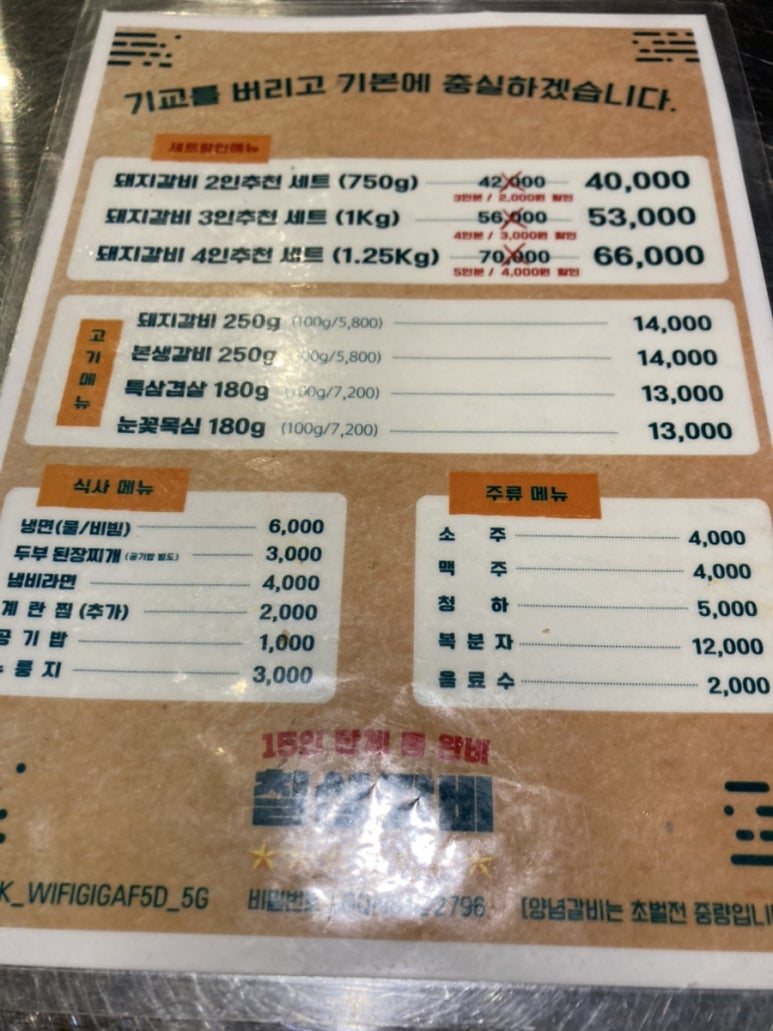 기교를 버리고 기본에 충실하겠습니다.
세트할인메뉴
돼지갈비 2인추천 세트 (750g) 42,000 40,000
3인분 / 2,000원 할인
돼지갈비 3인추천 세트 (1Kg) 56,000 53,000
4인분 / 3,000원 할인
돼지갈비 4인추천 세트 (1.25Kg) 70,000 66,000
5인분 / 4,000원 할인
고기메뉴
돼지갈비 250g (100g/5,800) 14,000
본생갈비 250g (100g/5,800) 14,000
특삼겹살 180g (100g/7,200) 13,000
눈꽃목심 180g (100g/7,200) 13,000
식사 메뉴
냉면(물/비빔) 6,000
두부 된장찌개 (공기밥 별도) 3,000
냄비라면 4,000
계 란 찜 (추가) 2,000
공 기 밥 1,000
룽 지 3,000
주류 메뉴
소 주 4,000
맥 주 4,000
청 하 5,000
복 분 자 12,000
음 료 수 2,000
15인 단체 룸 완비
K_WIFIGIGAF5D_5G 비밀번호 2796 [양념갈비는 초벌전 중량입니